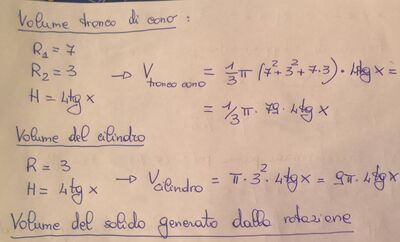 Volume tronco di cono :
R₁ = 7
R₂ = 3
H = 4tg x
→ V tronco cono = 1/3 π (7² + 3² + 7·3) · 4tg x =
= 1/3 π · 79 · 4tg x
Volume del cilindro
R = 3
H = 4tg x
→ V cilindro = π · 3² · 4tg x = 9π · 4tg x
Volume del solido generato dalla rotazione